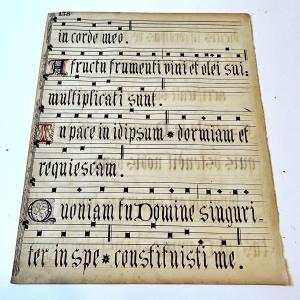 138
in corde meo.
A fructu frumenti vini et olei sui.
multiplicati sunt.
In pace in idipsum * dormiam et
requiescam.
Quoniam tu Domine singuri-
ter in spe * constituisti me.